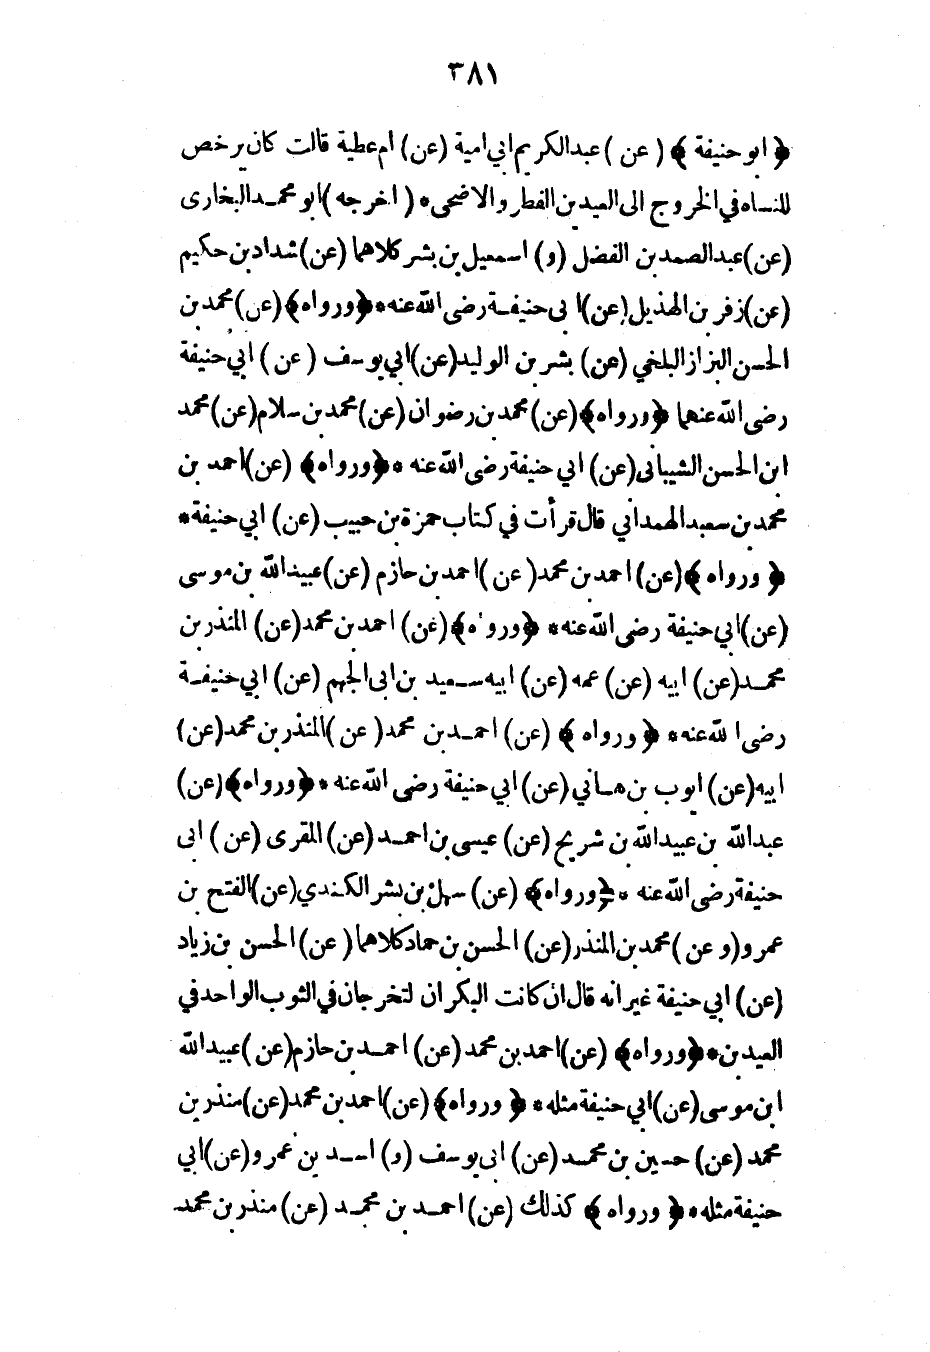 ٣٨١
﴿ ابو حنيفة ﴾ ( عن ) عبدالكريم ابي امية (عن) ام عطية قالت كان يرخص
للنساء في الخروج الى العيدين الفطر والاضحى * ( اخرجه ) ابو محمد البخارى
(عن) عبدالصمد بن الفضل (و) اسمعيل بن بشر كلاهما (عن) شداد بن حكيم
(عن) زفر بن الهذيل (عن) ابى حنيفة رضى الله عنه * ﴿ورواه﴾ (عن) محمد بن
الحسن البزاز البلخي (عن) بشر بن الوليد (عن) ابي يوسف ( عن ) ابي حنيفة
رضى الله عنهما ﴿ورواه﴾ (عن) محمد بن رضوان (عن) محمد بن سلام (عن) محمد
ابن الحسن الشيبانى (عن) ابي حنيفة رضى الله عنه * ﴿ورواه﴾ (عن) احمد بن
محمد بن سعيد الهمداني قال قرأت في كتاب حمزة بن حبيب (عن) ابي حنيفة *
﴿ ورواه ﴾ (عن) احمد بن محمد ( عن ) احمد بن حازم (عن) عبيدالله بن موسى
(عن) ابي حنيفة رضى الله عنه * ﴿ورواه﴾ (عن) احمد بن محمد (عن) المنذر بن
محمد (عن) ابيه (عن) عمه (عن) ابيه سعيد بن ابى الجهم (عن) ابي حنيفة
رضى الله عنه * ﴿ ورواه ﴾ (عن) احمد بن محمد ( عن ) المنذر بن محمد (عن)
ابيه (عن) ايوب بن هاني (عن) ابي حنيفة رضى الله عنه * ﴿ورواه﴾ (عن)
عبدالله بن عبيدالله بن شريح (عن) عيسى بن احمد (عن) المقرى (عن) ابى
حنيفة رضى الله عنه * ﴿ورواه﴾ (عن) سهل بن بشر الكندي (عن) الفتح بن
عمرو (و عن ) محمد بن المنذر (عن) الحسن بن حماد كلاهما ( عن ) الحسن بن زياد
(عن) ابي حنيفة غير انه قال ان كانت البكران لتخرجان في الثوب الواحد في
العيدين * ﴿ورواه﴾ (عن) احمد بن محمد (عن) احمد بن حازم (عن ) عبيدالله
ابن موسى (عن) ابي حنيفة مثله * ﴿ ورواه ﴾ (عن) احمد بن محمد (عن) منذر بن
محمد (عن) حسين بن محمد (عن) ابى يوسف (و) اسد بن عمرو (عن) ابي
حنيفة مثله * ﴿ ورواه ﴾ كذلك (عن) احمد بن محمد (عن) منذر بن محمد